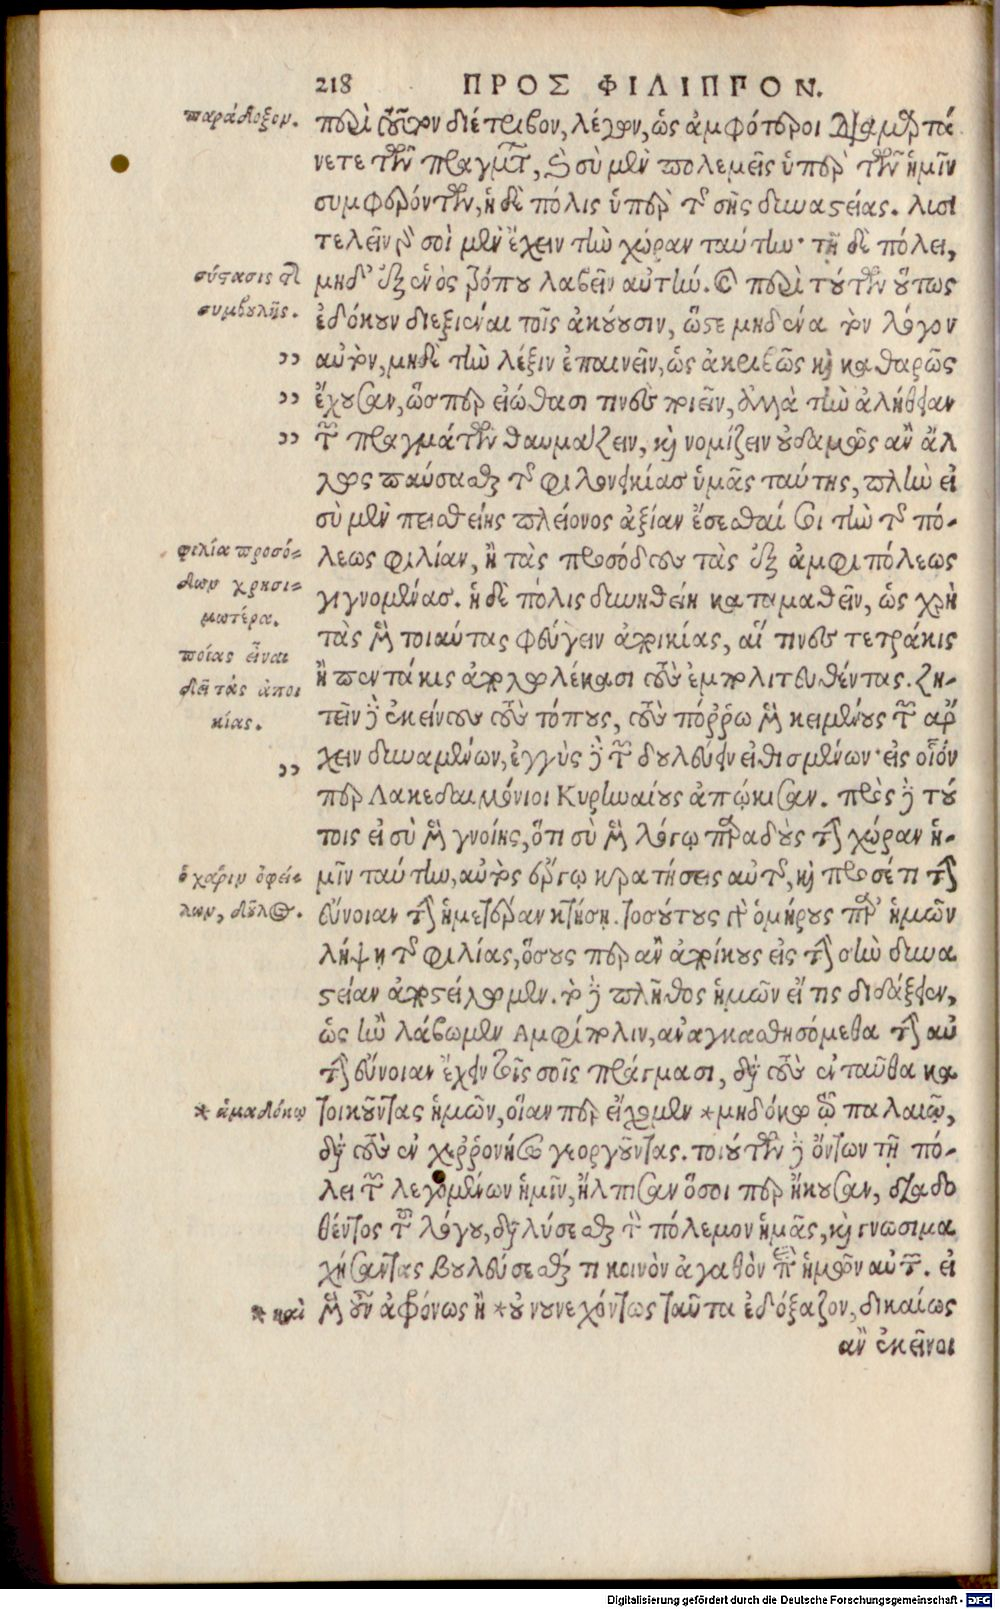 218 ΠΡΟΣ ΦΙΛΙΠΠΟΝ.
παράδοξον.
περὶ τοῦτον διέτριβον, λέγων, ὡς ἀμφότεροι διαμαρτά
νετε τῶν πραγμάτων, καὶ σὺ μὲν πολεμεῖς ὑπὲρ τῶν ἡμῖν
συμφερόντων, ἡ δὲ πόλις ὑπὲρ τῆς σῆς δυναστείας. λυσι
τελεῖν γὰρ σοὶ μὲν ἔχειν τὴν χώραν ταύτην· τῇ δὲ πόλει,
σύστασις τῆς
συμβουλῆς.
μηδ' ἐξ ἑνὸς τρόπου λαβεῖν αὐτήν. καὶ περὶ τούτων οὕτως
ἐδόκουν διεξιέναι τοῖς ἀκούουσιν, ὥστε μηδένα τὸν λόγον
αὐτὸν, μηδὲ τὴν λέξιν ἐπαινεῖν, ὡς ἀκριβῶς καὶ καθαρῶς
ἔχουσαν, ὥσπερ εἰώθασί τινες ποιεῖν, ἀλλὰ τὴν ἀλήθειαν
τῶν πραγμάτων θαυμάζειν, καὶ νομίζειν οὐδαμῶς ἂν ἄλ
λως παύσασθαι τῆς φιλονεικίας ὑμᾶς ταύτης, πλὴν εἰ
σὺ μὲν πεισθείης πλείονος ἀξίαν ἔσεσθαί σοι τὴν τῆς πό-
φιλία προσό-
δων χρησι-
μωτέρα.
λεως φιλίαν, ἢ τὰς προσόδους τὰς ἐξ ἀμφιπόλεως
γιγνομένας. ἡ δὲ πόλις δυνηθείη καταμαθεῖν, ὡς χρὴ
τὰς μὲν τοιαύτας φεύγειν ἀποικίας, αἵ τινες τετράκις
ποίας εἶναι
δεῖ τὰς ἀποι
κίας.
ἢ πεντάκις ἀπολωλέκασι τοὺς ἐμπολιτευθέντας. ζη-
τεῖν δὲ ἐκείνους τοὺς τόπους, τοὺς πόῤῥω μὲν κειμένους τῶν ἄρ
χειν δυναμένων, ἐγγὺς δὲ τῶν δουλεύειν εἰθισμένων· εἰς οἷόν
περ Λακεδαιμόνιοι Κυρηναίους ἀπῴκισαν. πρὸς δὲ τού
τοις εἰ σὺ μὲν γνοίης, ὅτι σὺ μὲν λόγῳ παραδοὺς τὴν χώραν ἡ-
ὁ χάριν ὀφεί-
λων, δοῦλος.
μῖν ταύτην, αὐτὸς ἔργῳ κρατήσεις αὐτῆς, καὶ προσέτι τὴν
εὔνοιαν τὴν ἡμετέραν κτήσῃ. τοσούτους γὰρ ὁμήρους παρ' ἡμῶν
λήψῃ τῆς φιλίας, ὅσους περ ἂν ἀποίκους εἰς τὴν σὴν δυνα
στείαν ἀποστείλωμεν. τὸ δὲ πλῆθος ἡμῶν εἴ τις διδάξειεν,
ὡς ἢν λάβωμεν Αμφίπολιν, ἀναγκασθησόμεθα τὴν αὐ
τὴν εὔνοιαν ἔχειν τοῖς σοῖς πράγμασι, διὰ τοὺς ἐνταῦθα κα
* ἀμαδόκῳ
τοικοῦντας ἡμῶν, οἵαν περ εἴχομεν *μηδόκῳ τῷ παλαιῷ,
διὰ τοὺς ἐν χεῤῥονήσῳ γεοργοῦντας. τοιούτων δὲ ὄντων τῇ πό-
λει τῶν λεγομένων ἡμῖν, ἤλπισαν ὅσοι περ ἤκουσαν, διαδο
θέντος τοῦ λόγου, διαλύσεσθαι τὸν πόλεμον ἡμᾶς, καὶ γνωσιμα
χήσαντας βουλεύσεσθαί τι κοινὸν ἀγαθὸν περὶ ἡμῶν αὐτῶν. εἰ
* καὶ
μὲν οὖν ἀφρόνως ἢ *οὐ νουνεχόντως ταῦτα ἐδόξαζον, δικαίως
ἂν ἐκεῖνοι